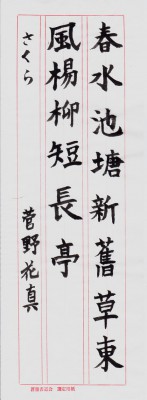 春水池塘新舊草東
風楊柳短長亭
さくら
菅野花真